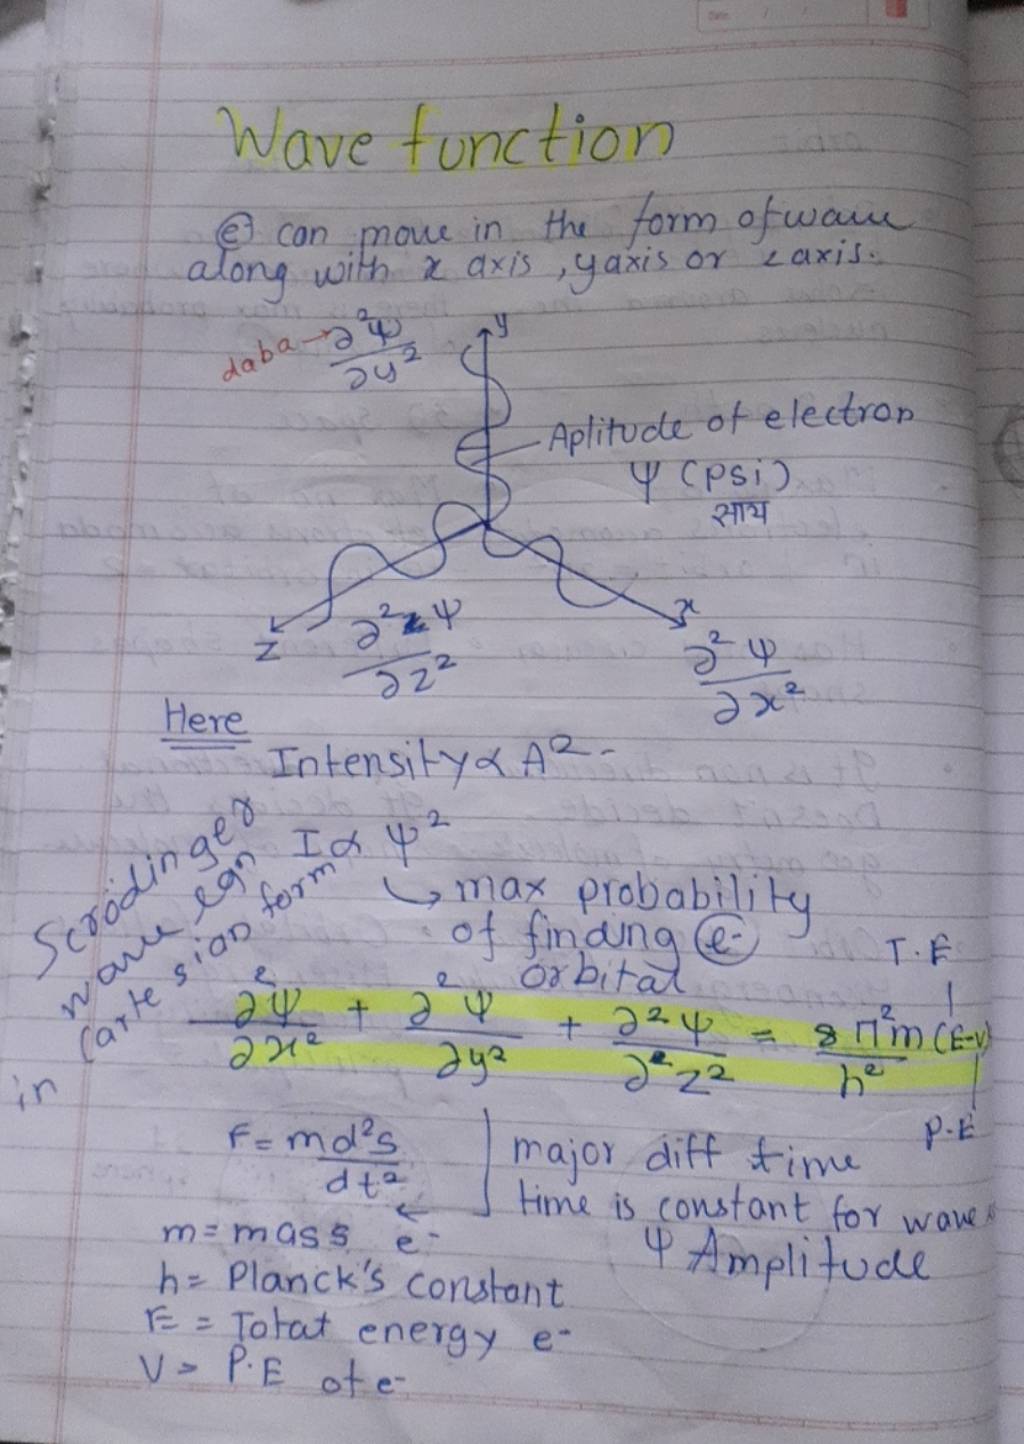 Wave function
e⁻ can move in the form of wave
along with x axis, y axis or z axis.
daba → ∂²Ψ/∂y²
y
Aplitude of electron
Ψ (psi)
साय
z
∂²Ψ/∂z²
x
∂²Ψ/∂x²
Here
Intensity ∝ A²
I ∝ Ψ²
↳ max probability
of finding e⁻
orbital
Scrodinger
wave eqn
in cartesian form
T.E
∂²Ψ/∂x² + ∂²Ψ/∂y² + ∂²Ψ/∂²z² = 8π²m/h² (E-V)
P.E
F = md²s/dt²
major diff time
time is constant for wave
m = mass e⁻
Ψ Amplitude
h = Planck's constant
E = Totat energy e⁻
V = P.E of e⁻